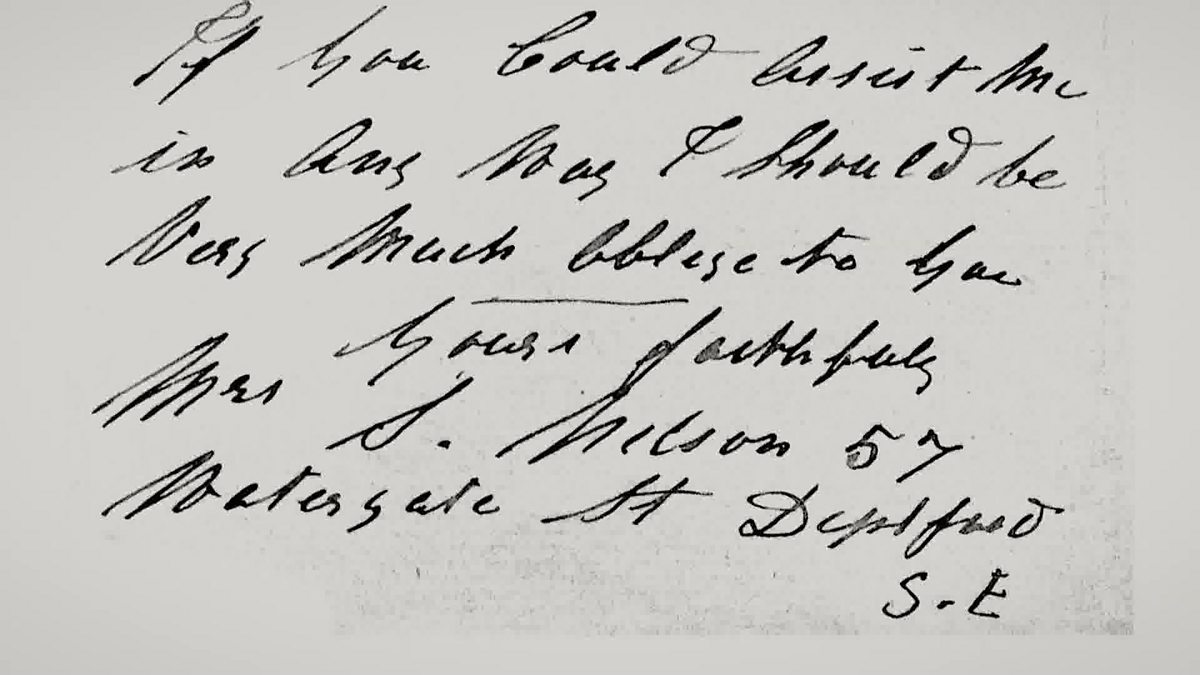 If you Could Assist Me
in Any Way I Should be
Very Much Oblige to you
yours faithfuly
Mrs S. Nelson 57
Watergate St Deptford
S.E